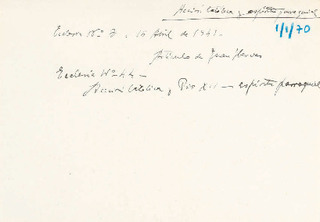 Acción Católica y espíritu parroquial
1/1/70
Ecclesia Nº 7, 16 Abril de 1941.
Artículo de
Ecclesia Nº 44 -
Acción Católica y Pio XII — espíritu parroquial